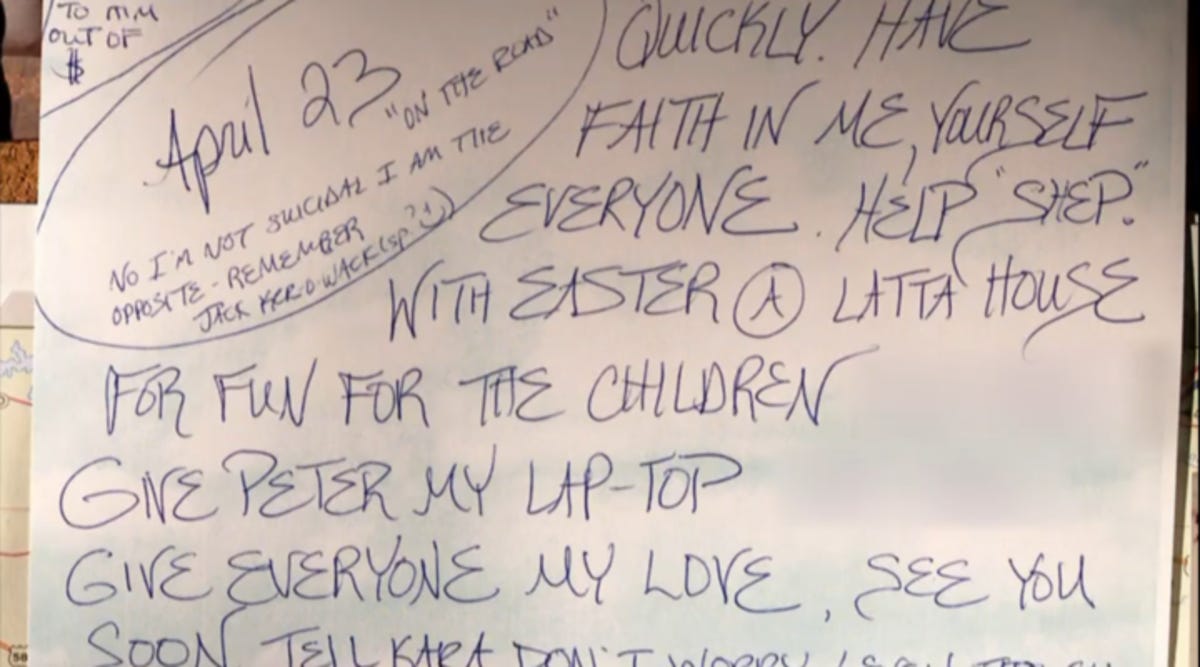 TO MM
OUT OF
$
April 23
"ON THE ROAD"
NO I'M NOT SUICIDAL I AM THE
OPPOSITE - REMEMBER
JACK KER-O-WACK (sp.?:))
QUICKLY. HAVE
FAITH IN ME, YOURSELF
EVERYONE. HELP "SHEP."
WITH EASTER Ⓐ LATTA HOUSE
FOR FUN FOR THE CHILDREN
GIVE PETER MY LAP-TOP
GIVE EVERYONE MY LOVE, SEE YOU
SOON TELL KARA DON'T WORRY
58